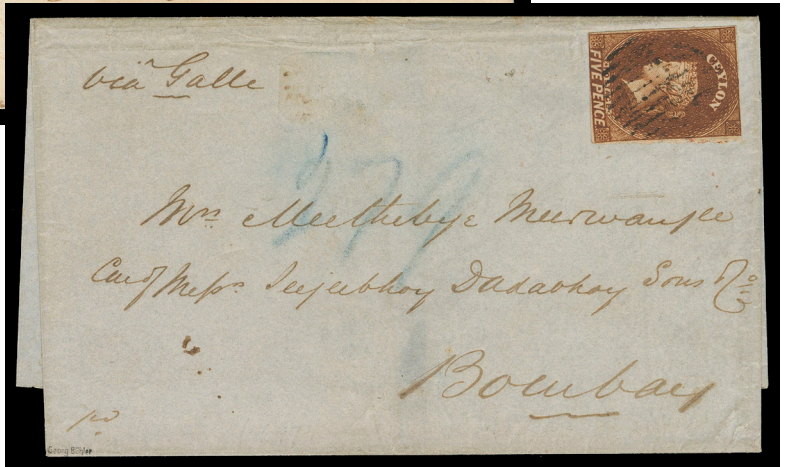 via Galle
CEYLON
POSTAGE
FIVE PENCE
279
Mrs Meethebye Meerwanjee
Care of Messrs Jeejeebhoy Dadabhoy Sons & Co
Bombay
pd
Georg Bühler